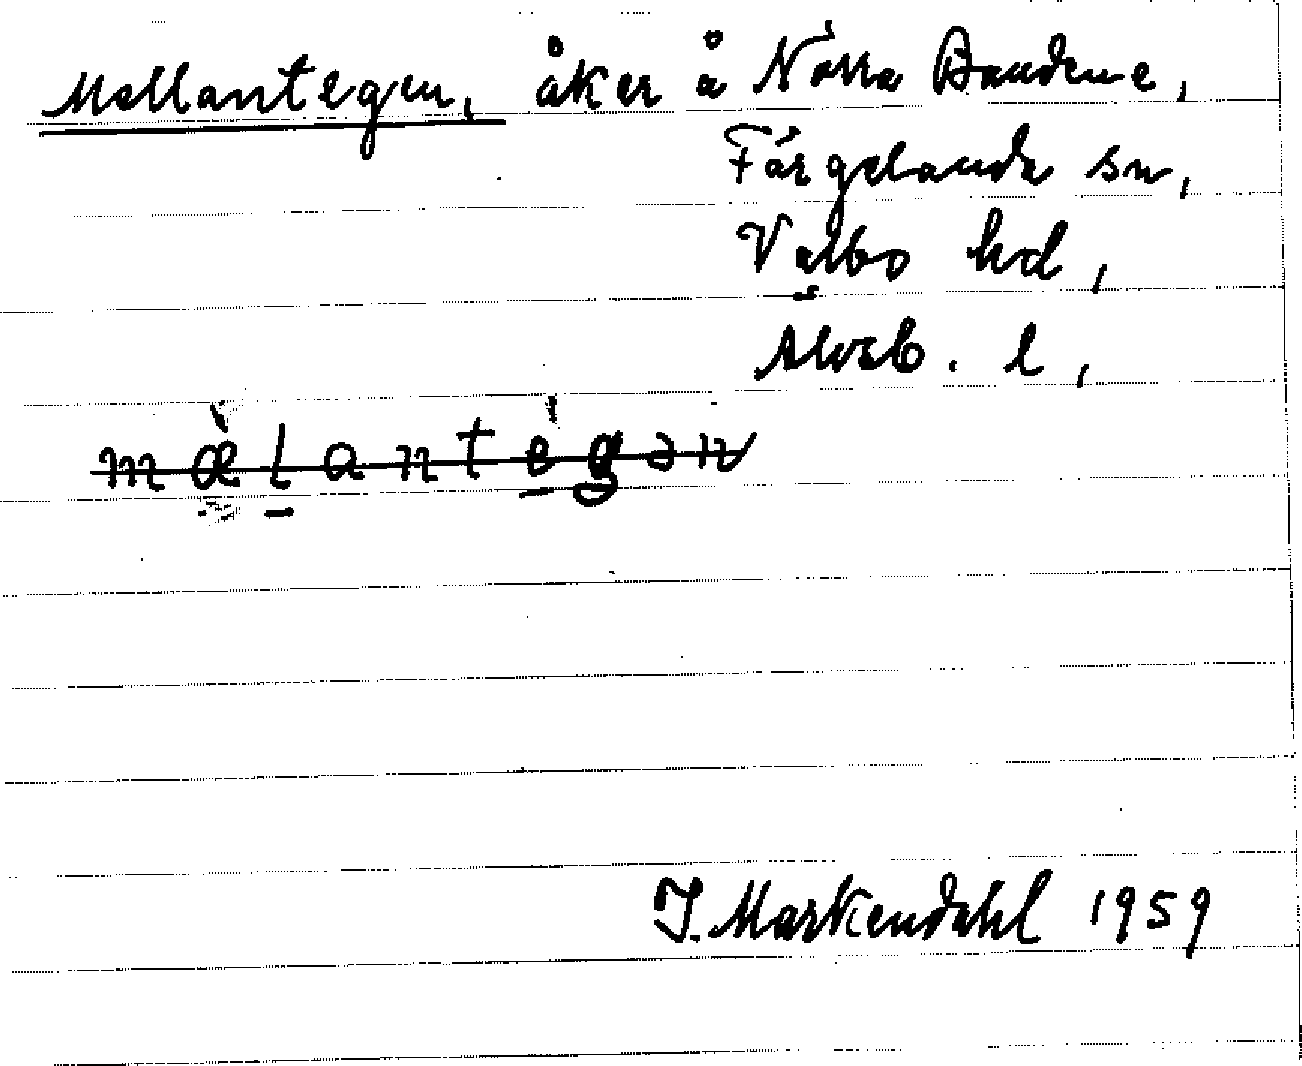 Mellantegen, åker å Norra Bandene,
Färgelanda sn,
Valbo hd,
Älvsb. l,
mæ̀lantégən
J. Markendahl 1959